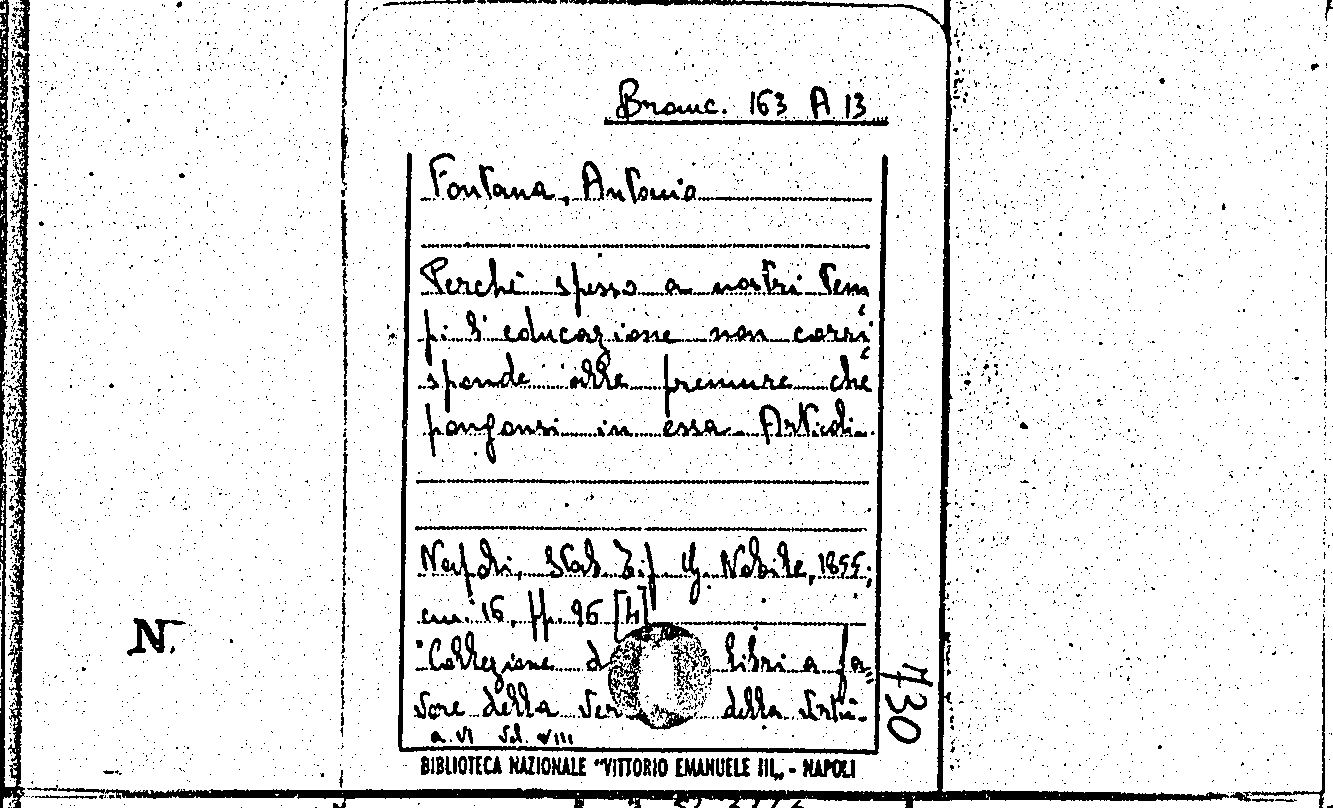 Branc. 163 A 13
Fontana, Antonio
Perchè spesso a nostri tem
pi l'educazione non corri
sponde alle premure che
pongonsi in essa Articoli
Napoli, Stab. Tip. G. Nobile, 1855,
cm. 16, pp. 96 [4]
"Collezione d libri a fa=
vore della Ver della Virtù.
a. VI Vol. VIII
N.
730
BIBLIOTECA NAZIONALE "VITTORIO EMANUELE III„ - NAPOLI